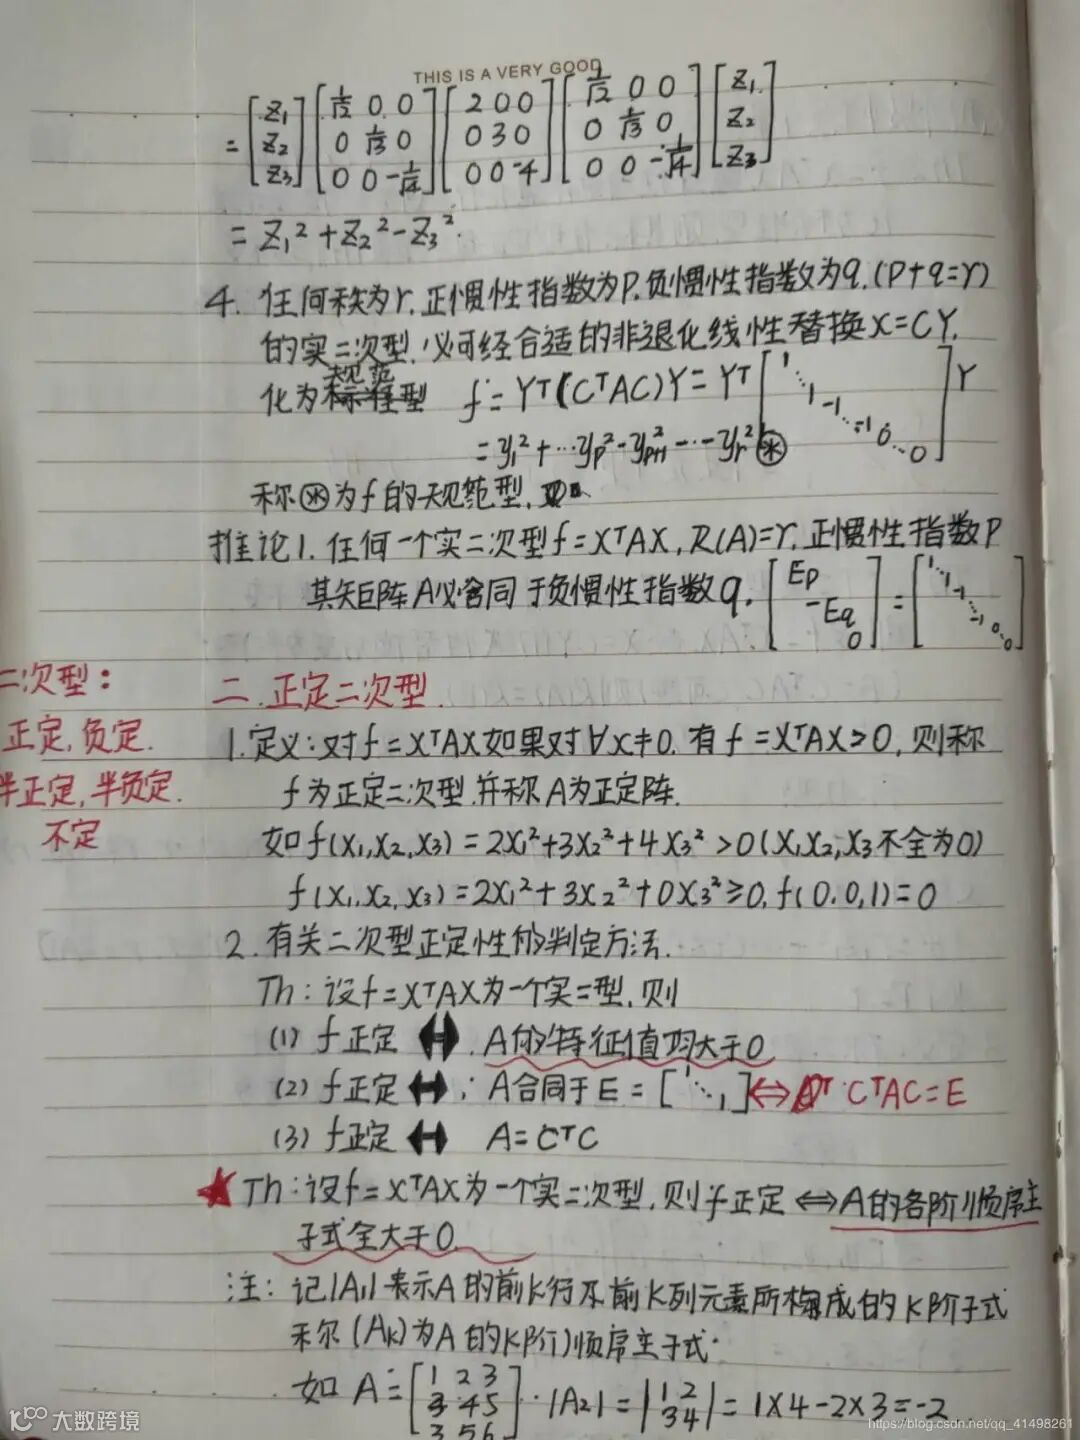 THIS IS A VERY GOOD
= [z₁ z₂ z₃] [1/√2 0 0; 0 1/√3 0; 0 0 -1/√4] [2 0 0; 0 3 0; 0 0 -4] [1/√2 0 0; 0 1/√3 0; 0 0 -1/√4] [z₁ z₂ z₃]
= z₁² + z₂² - z₃²
4. 任何秩为r,正惯性指数为p,负惯性指数为q,(p+q=r)
的实二次型,必可经合适的非退化线性替换X=CY,
化为规范型 f = Yᵀ(CᵀAC)Y = Yᵀ [1 ⋱ 1 -1 ⋱ -1 0 ⋱ 0] Y
= y₁² + ⋯ yₚ² - yₚ₊₁² - ⋯ - yᵣ² ⊛
称⊛为f的规范型,
推论1. 任何一个实二次型f=XᵀAX, R(A)=r, 正惯性指数p
其矩阵A必合同于负惯性指数q, [Ep -Eq 0] = [1 ⋱ 1 -1 ⋱ -1 0 ⋱ 0]
二次型:
正定,负定.
半正定,半负定.
不定
二.正定二次型.
1.定义:对f=XᵀAX如果对∀x≠0,有f=XᵀAX>0,则称
f为正定二次型,并称A为正定阵.
如f(x₁,x₂,x₃) = 2x₁²+3x₂²+4x₃² >0 (x₁,x₂,x₃不全为0)
f(x₁,x₂,x₃) = 2x₁²+3x₂²+0x₃² ≥0, f(0,0,1)=0
2.有关二次型正定性的判定方法.
Th:设f=XᵀAX为一个实二型,则
(1) f正定 ⟺ A的特征值均大于0
(2) f正定 ⟺: A合同于E = [1 ⋱ 1] ⟺ CᵀAC=E
(3) f正定 ⟺ A=CᵀC
★Th:设f=XᵀAX为一个实二次型,则f正定 ⟺ A的各阶顺序主
子式全大于0.
注: 记|A₁|表示A的前K行及前K列元素所构成的K阶子式
称(Aₖ)为A的K阶顺序主子式.
如 A = [1 2 3; 3 4 5; 3 5 6] . |A₂| = |1 2; 3 4| = 1×4-2×3=-2
大数跨境
https://blog.csdn.net/qq_41498261